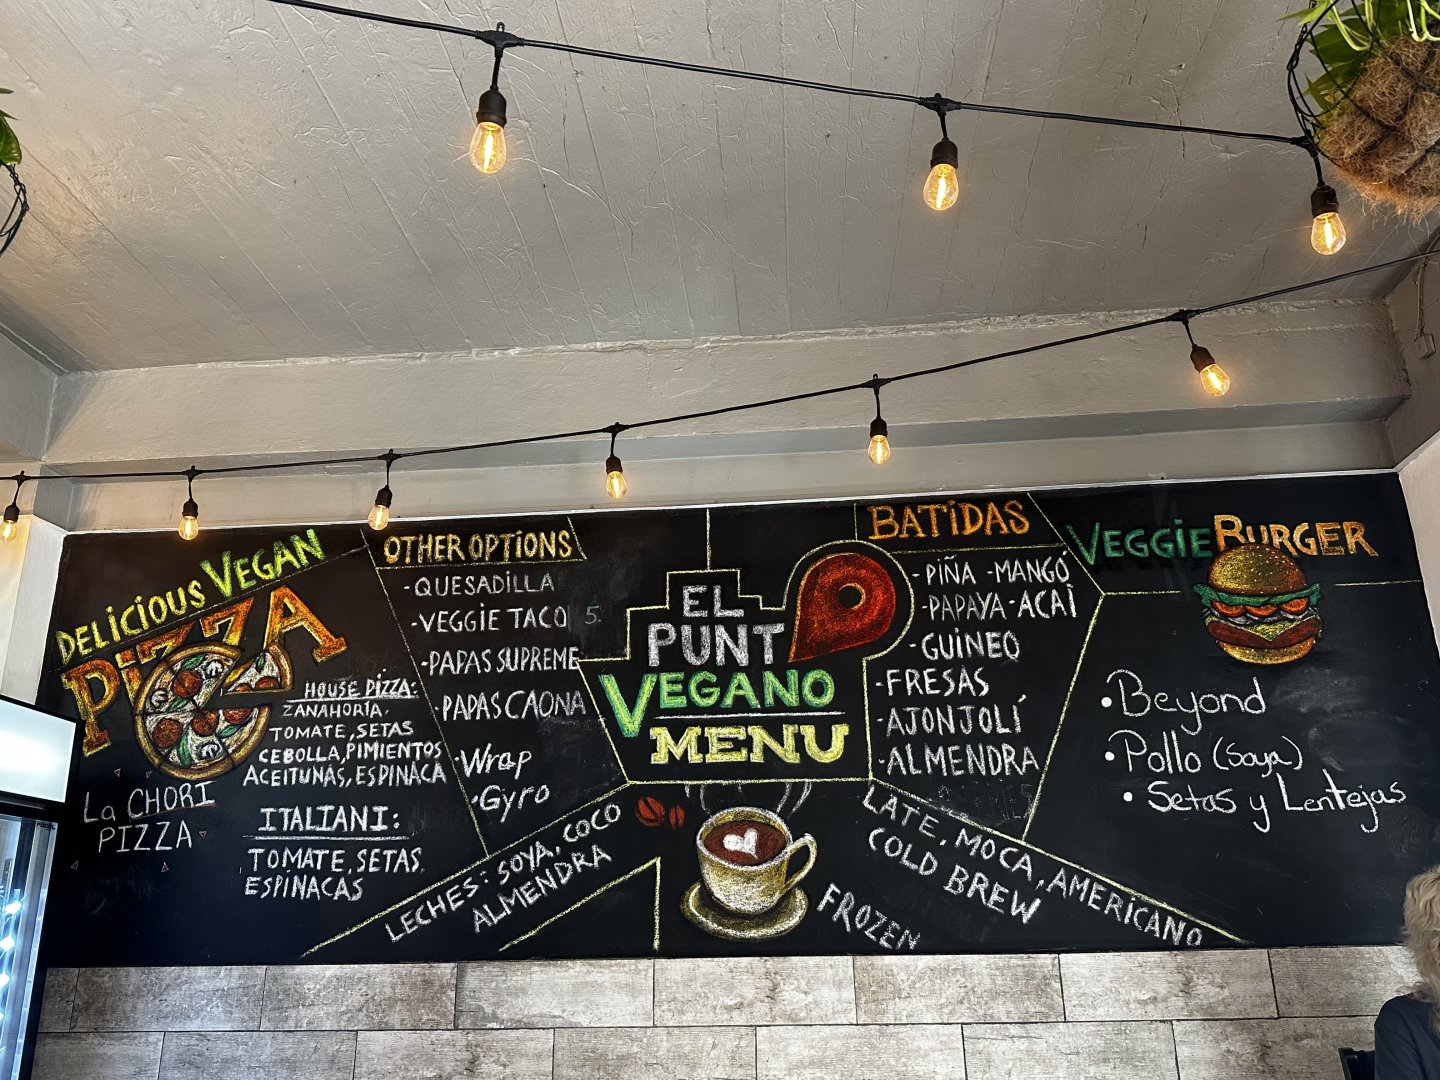 DELICIOUS VEGAN
PIZZA
HOUSE PIZZA:
ZANAHORIA,
TOMATE, SETAS
CEBOLLA, PIMIENTOS
ACEITUNAS, ESPINACA
La CHORI
PIZZA
ITALIANI:
TOMATE, SETAS,
ESPINACAS
OTHER OPTIONS
-QUESADILLA
-VEGGIE TACO 5.
-PAPAS SUPREME
-PAPAS CAONA
-Wrap
-Gyro
LECHES: SOYA, COCO
ALMENDRA
EL
PUNTO
VEGANO
MENU
BATIDAS
-PIÑA -MANGÓ
-PAPAYA-ACAÍ
-GUINEO
-FRESAS
-AJONJOLÍ
-ALMENDRA
LATE, MOCA, AMERICANO
COLD BREW
FROZEN
VEGGIE BURGER
• Beyond
• Pollo (Soya)
• Setas y Lentejas